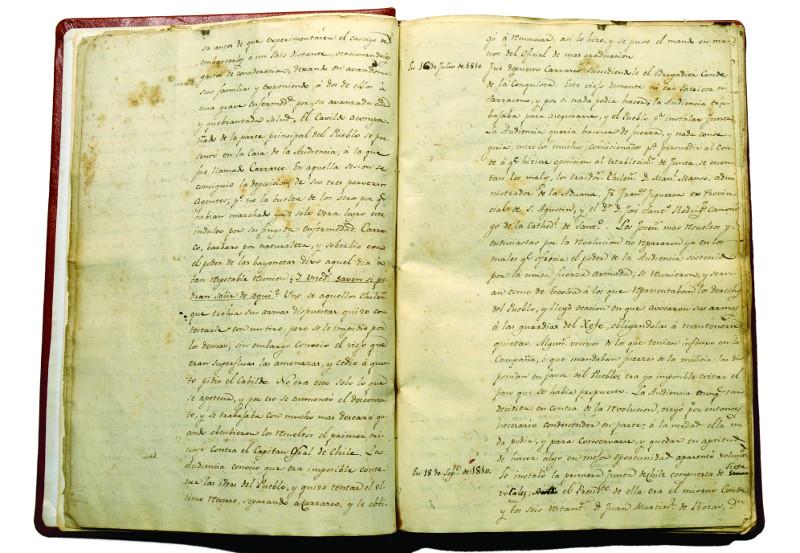 sa antes de que experimentasen el castigo de
embarcarlos á un País distante, ocasionandoles
gastos de consideracion, dexando en avandono
sus familias y exponiendo á dos de ellos á
una grave enfermedad por su avanzada edad
y quebrantada salud. El Cavildo acompa-
ñado de la parte principal del Pueblo se pre-
sentó en la Casa de la Audiencia, á la que
fue llamado Carrasco. En aquella sesion se
consiguió la deposision de sus tres perversos
Agentes; pº no la buelta de los otros por qº
habian marchado ya: solo Vera logró este
indulto por su fingida enfermedad. Carras-
co, barbaro por naturaleza, y soberbio con
el poder de las bayonetas dixo aquel dia á
tan respetable reunion: ¿Y Vmds saven si po-
dran salir de aqui? Uno de aquellos Chilenˢ
que trahia sus armas dispuestas quizo con-
testarle con un tiro, pero se lo impidieron
los demas; sin embargo conoció el viejo que
eran superfluas las amenazas, y cedió á qᵗᵒ
pidio el Cabildo. No era esto solo lo que
se apetecia, y por eso se aumentó el desconten-
to, y se trabajaba con mucho mas descaro qº
ando obtubieron los revueltos el primer tri-
unfo contra el Capitan Gral de Chile. La
Audiencia conoció que era imposible conte-
ner las ideas del Pueblo, y quizo tentar el ul-
timo recurso, separando á Carrasco, y le obli-
gó á renunciar, así lo hizo, y se puso el mando en ma-
nos del Oficial de mas graduacion.
En 16 de Julio de 1810.
Fue depuesto Carrasco sucediendole el Brigadier Conde
de la Conquista. Este viejo demente no era Catalan ni
Sarraceno, y por si nada podia hacer; la Audiencia tra-
bajaba para asegurarse, y el Pueblo pª instalar Junta.
La Audiencia queria hacerse de fuerza, y nada conse-
guia; entre los muchos comicionados pª persuadir al Con-
de á qº hiziese oposicion al establecimᵗᵒ de Junta, se cuen-
tan los malos, los traidorˢ Chilenˢ D. Manˡ Manso, admi-
nistrador de la Aduana, Fr. Franᶜᵒ Figueroa ex Provin-
cial de S. Agustin, y el Dʳ D. José Santˢ Rodrigᶻ Canoni-
go de la Cathedˡ de Santº. Los Jovenˢ mas resueltos y
entusiastas por la revolucion no repararon ya en los
males qº ofrecia el poder de la Audiencia sostenido
por la unica fuerza armada; se reunieron, y servi-
an como de Escolta á los que representaban los derechˢ
del Pueblo, y llegó ocacion en que asestaron sus armas
á las guardias del Xefe, obligandolas á mantenerse
quietas. Algunˢ vecinos de los que tenian influxo en la
Campaña, ó que mandaban fuerzas de la milicia las dis-
ponian en favor del Pueblo; era ya imposible evitar el
paso que se habia propuesto. La Audiencia aunqº tan
decidida en contra de la revolucion, creyó por entonces
necesario condescender en parte; á la verdad ella na-
da podia, y para conservarse, y quedar en aptitud
de hacer algo en mejor oportunidad aparentó voluntad.
En 18 de Sepᵉ de 1810.
Se instaló la primera Junta de Chile compuesta de siete
vocales; el Presidᵗᵉ de ella era el mismo Conde
y los seis restantˢ D. Juan Martinᶻ de Rozas, Dⁿ